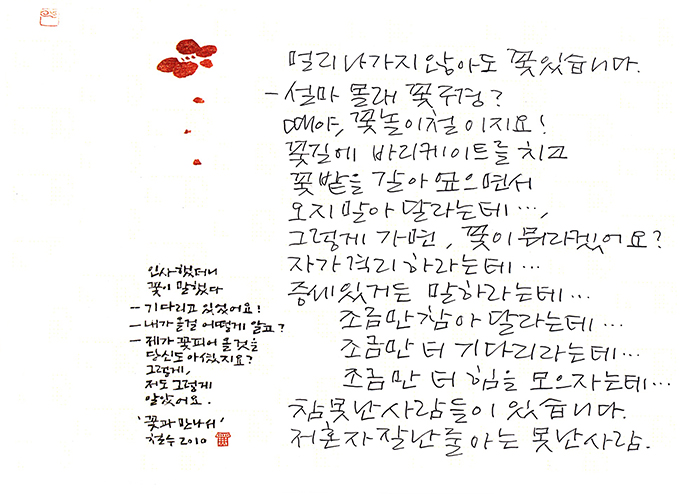 멀리 나가지 않아도 꽃 있습니다.
- 설마 몰래 꽃구경?
때야, 꽃놀이철이지요!
꽃길에 바리케이트를 치고
꽃밭을 갈아 엎으면서
오지 말아 달라는데…,
그렇게 가면, 꽃이 뭐라겠어요?
자가격리 하라는데…
증세있거든 말하라는데…
조금만 참아 달라는데…
조금만 더 기다리라는데…
조금만 더 힘을 모으자는데…
참 못난 사람들이 있습니다.
저 혼자 잘난 줄 아는 못난 사람.
인사했더니
꽃이 말했다
- 기다리고 있었어요!
- 내가 올걸 어떻게 알고?
- 제가 꽃피어 올것을
당신도 아셨지요?
그렇게,
저도 그렇게
알았어요.
'꽃과 만나서'
철수 2010